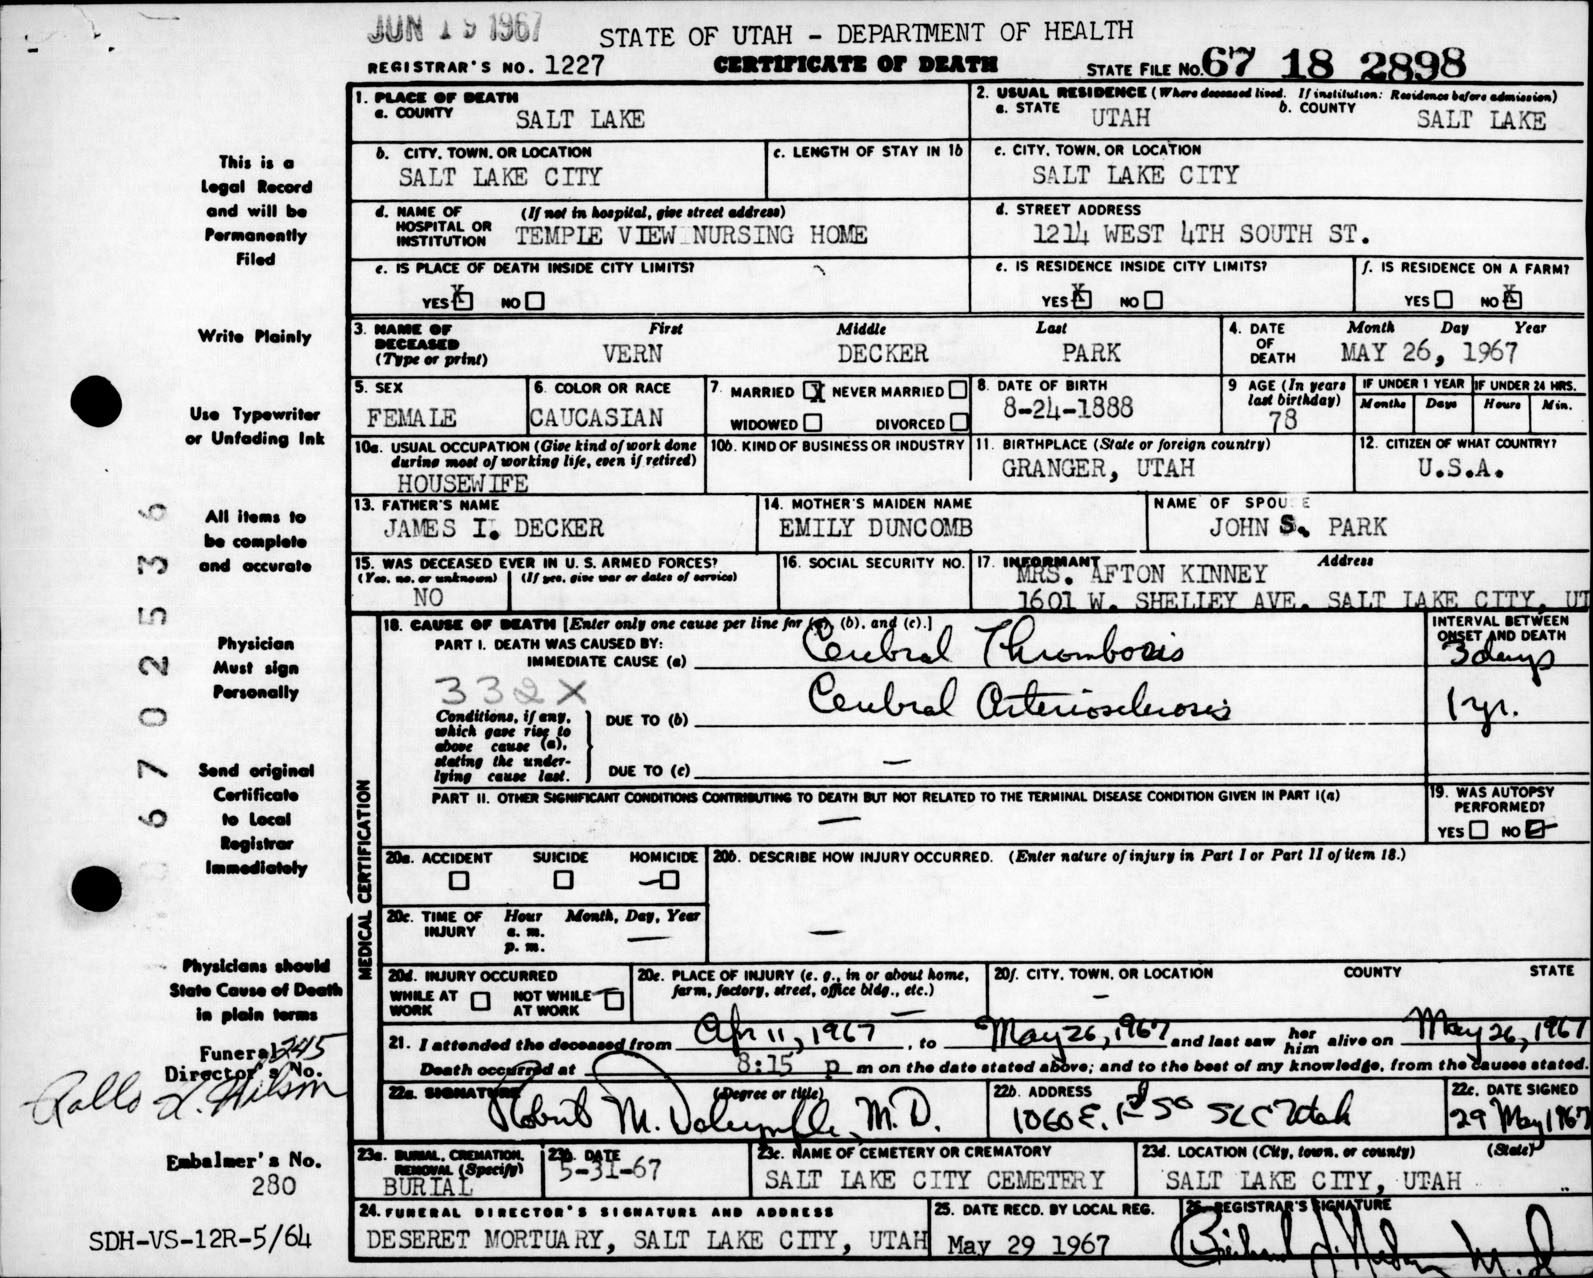 JUN 19 1967
STATE OF UTAH - DEPARTMENT OF HEALTH
REGISTRAR'S NO. 1227 CERTIFICATE OF DEATH STATE FILE NO. 67 18 2898
1. PLACE OF DEATH
a. COUNTY SALT LAKE
2. USUAL RESIDENCE (Where deceased lived. If institution: Residence before admission)
a. STATE UTAH b. COUNTY SALT LAKE
b. CITY, TOWN, OR LOCATION
SALT LAKE CITY
c. LENGTH OF STAY IN 1b
c. CITY, TOWN, OR LOCATION
SALT LAKE CITY
d. NAME OF HOSPITAL OR INSTITUTION (If not in hospital, give street address)
TEMPLE VIEW NURSING HOME
d. STREET ADDRESS
1214 WEST 4TH SOUTH ST.
e. IS PLACE OF DEATH INSIDE CITY LIMITS?
YES X NO
e. IS RESIDENCE INSIDE CITY LIMITS?
YES X NO
f. IS RESIDENCE ON A FARM?
YES NO X
3. NAME OF DECEASED (Type or print) First Middle Last
VERN DECKER PARK
4. DATE OF DEATH Month Day Year
MAY 26, 1967
5. SEX
FEMALE
6. COLOR OR RACE
CAUCASIAN
7. MARRIED X NEVER MARRIED
WIDOWED DIVORCED
8. DATE OF BIRTH
8-24-1888
9 AGE (In years last birthday)
78
IF UNDER 1 YEAR
Months Days
IF UNDER 24 HRS.
Hours Min.
10a. USUAL OCCUPATION (Give kind of work done during most of working life, even if retired)
HOUSEWIFE
10b. KIND OF BUSINESS OR INDUSTRY
11. BIRTHPLACE (State or foreign country)
GRANGER, UTAH
12. CITIZEN OF WHAT COUNTRY?
U.S.A.
13. FATHER'S NAME
JAMES I. DECKER
14. MOTHER'S MAIDEN NAME
EMILY DUNCOMB
NAME OF SPOUSE
JOHN S. PARK
15. WAS DECEASED EVER IN U. S. ARMED FORCES?
(Yes, no, or unknown) (If yes, give war or dates of service)
NO
16. SOCIAL SECURITY NO.
17. INFORMANT Address
MRS. AFTON KINNEY
1601 W. SHELLEY AVE. SALT LAKE CITY, UT
18. CAUSE OF DEATH [Enter only one cause per line for (a), (b), and (c).]
INTERVAL BETWEEN ONSET AND DEATH
PART I. DEATH WAS CAUSED BY:
IMMEDIATE CAUSE (a) Cerebral Thrombosis 3 days
332X
Conditions, if any, which gave rise to above cause (a), stating the underlying cause last.
DUE TO (b) Cerebral Arteriosclerosis 1 yr.
DUE TO (c) —
PART II. OTHER SIGNIFICANT CONDITIONS CONTRIBUTING TO DEATH BUT NOT RELATED TO THE TERMINAL DISEASE CONDITION GIVEN IN PART I(a)
—
19. WAS AUTOPSY PERFORMED?
YES NO
20a. ACCIDENT SUICIDE HOMICIDE
20b. DESCRIBE HOW INJURY OCCURRED. (Enter nature of injury in Part I or Part II of item 18.)
—
20c. TIME OF INJURY Hour Month, Day, Year
a. m.
p. m.
—
20d. INJURY OCCURRED
WHILE AT WORK NOT WHILE AT WORK
20e. PLACE OF INJURY (e. g., in or about home, farm, factory, street, office bldg., etc.)
—
20f. CITY, TOWN, OR LOCATION COUNTY STATE
—
21. I attended the deceased from Apr 11, 1967, to May 26, 1967 and last saw her him alive on May 26, 1967
Death occurred at 8:15 p m on the date stated above; and to the best of my knowledge, from the causes stated.
22a. SIGNATURE (Degree or title)
Robert M. Dalrymple, M.D.
22b. ADDRESS
1060 E. 1st So SLC Utah
22c. DATE SIGNED
29 May 1967
23a. BURIAL, CREMATION, REMOVAL (Specify)
BURIAL
23b. DATE
5-31-67
23c. NAME OF CEMETERY OR CREMATORY
SALT LAKE CITY CEMETERY
23d. LOCATION (City, town, or county) (State)
SALT LAKE CITY, UTAH
24. FUNERAL DIRECTOR'S SIGNATURE AND ADDRESS
DESERET MORTUARY, SALT LAKE CITY, UTAH
25. DATE RECD. BY LOCAL REG.
May 29 1967
26. REGISTRAR'S SIGNATURE
MEDICAL CERTIFICATION
This is a
Legal Record
and will be
Permanently
Filed
Write Plainly
Use Typewriter
or Unfading Ink
All items to
be complete
and accurate
Physician
Must sign
Personally
Send original
Certificate
to Local
Registrar
Immediately
Physicians should
State Cause of Death
in plain terms
Funeral
Director's No.
245
Rallo X. Wilson
Embalmer's No.
280
SDH-VS-12R-5/64
6702536